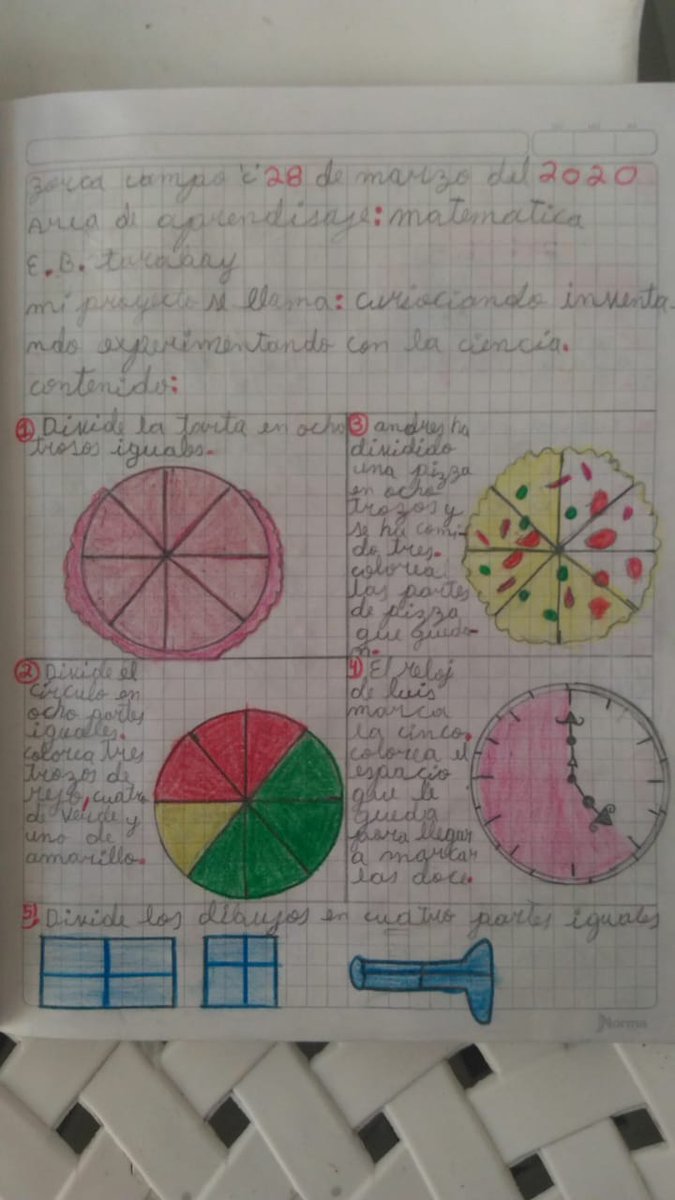 zorca campo "C" 28 de marzo del 2020
Area de aprendisaje: matematica
E.B. turabay
mi proyecto se llama: curiociando inventa-
ndo experimentando con la ciencia.
contenido:
1 Divide la tarta en ocho
trosos iguales.
2 Divide el
circulo en
ocho partes
iguales.
colorea tres
trozos de
rojo, cuatro
de verde y
uno de
amarillo.
3 andres ha
dividido
una pizza
en ocho
trozos y
se ha comi-
do tres.
colorea
las partes
de pizza
que queda-
n.
4 El reloj
de luis
marca
la cinco.
colorea el
espacio
que le
queda
para llegar
a marcar
las doce.
5 Divide los dibujos en cuatro partes iguales
Norma